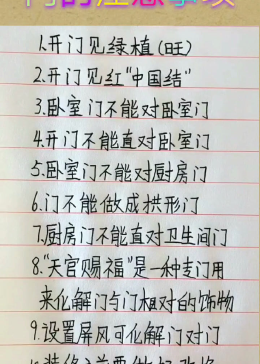 门的注意事项
1.开门见绿植(旺)
2.开门见红“中国结”
3.卧室门不能对卧室门
4.开门不能直对卧室门
5.卧室门不能对厨房门
6.门不能做成拱形门
7.厨房门不能直对卫生间门
8.“天官赐福”是一种专门用
来化解门与门相对的饰物
9.设置屏风可化解门对门